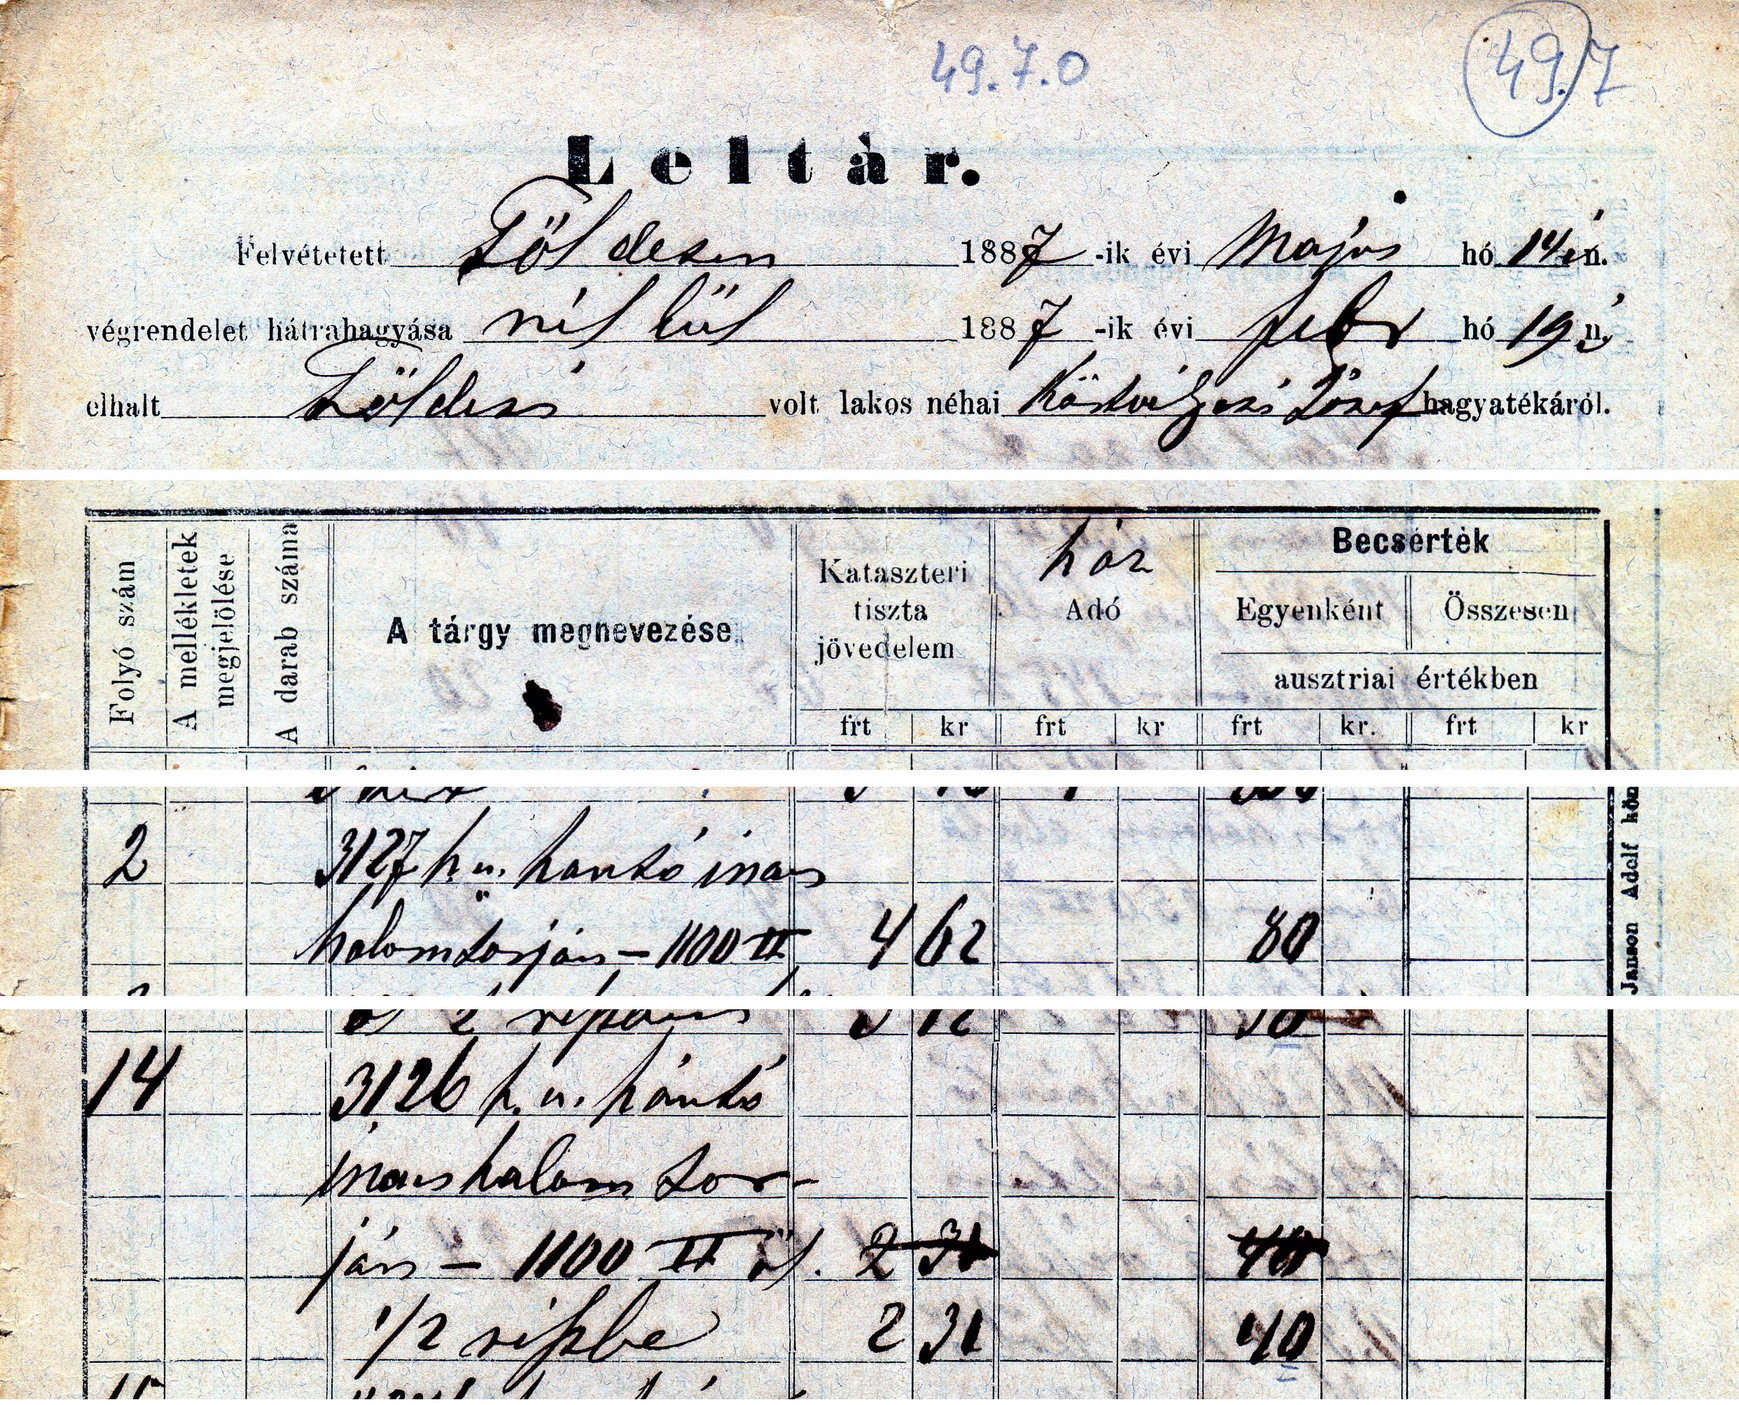 49.7.0
49.7
Leltár.
Felvétetett Földesen 1887-ik évi Majus hó 14én.
végrendelet hátrahagyása nélkül 1887-ik évi febr hó 19én
elhalt Földesi volt lakos néhai József hagyatékáról.
Folyó szám
A mellékletek megjelölése
A darab száma
A tárgy megnevezése
Kataszteri tiszta jövedelem
ház
Adó
Becsérték
Egyenként Összesen
ausztriai értékben
frt kr frt kr frt kr. frt kr
2 3127 h.u. hantó inas
halom torján – 1100 II 4 62 80
Janson Adolf kön
14 3126 h.u. hántó
inas halom tor-
ján – 1100 II öl. 2 31 40
1/2 részbe 2 31 40